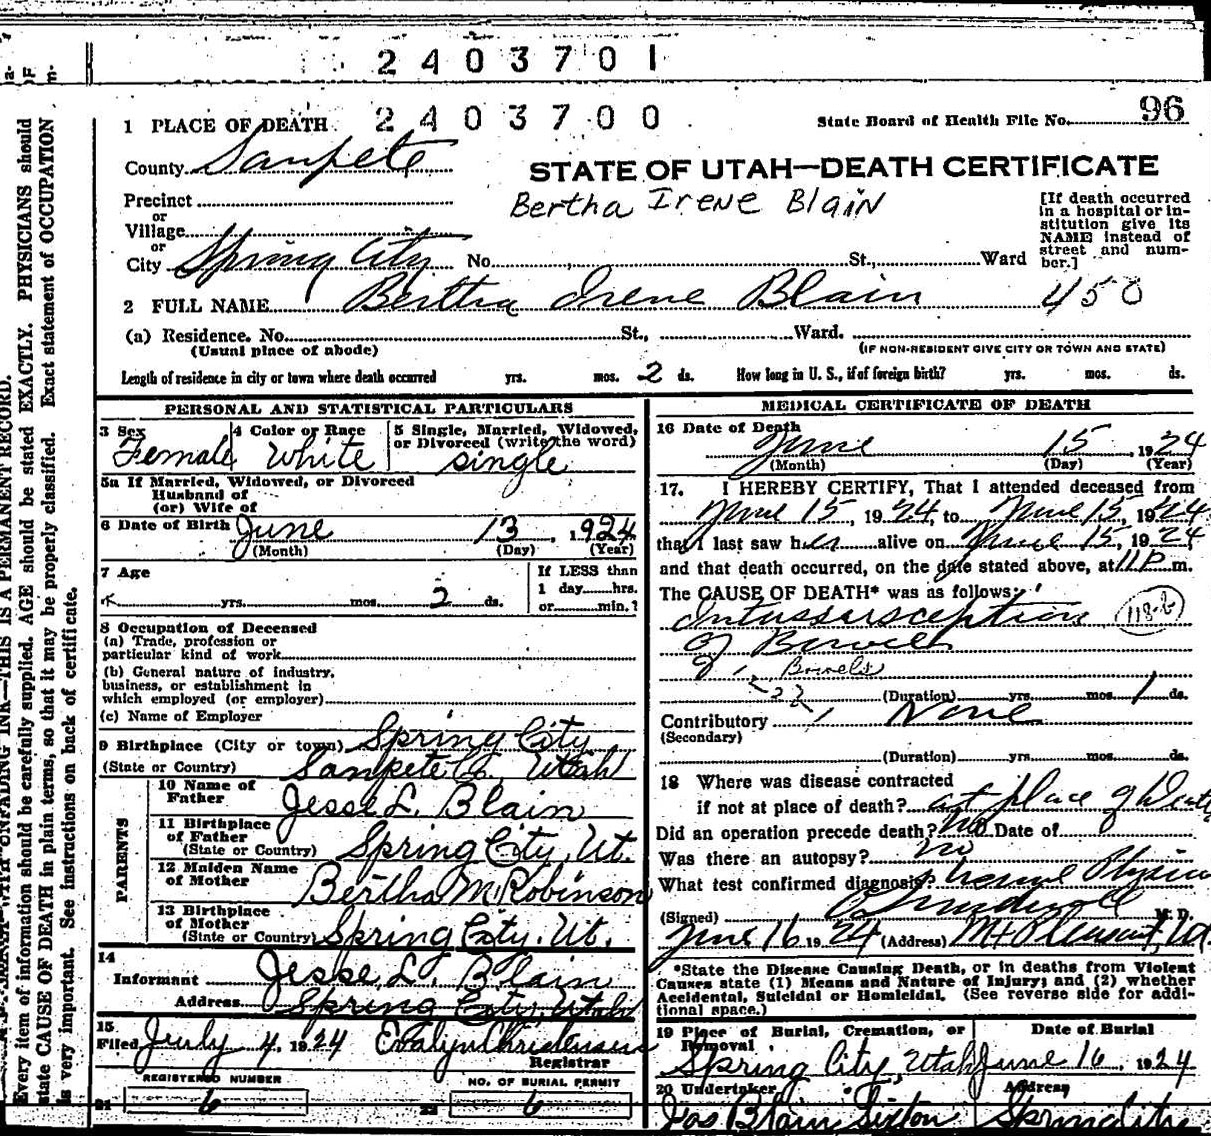 2403701
2403700
96
1 PLACE OF DEATH
State Board of Health File No.
County Sanpete
STATE OF UTAH—DEATH CERTIFICATE
Precinct
Bertha Irene Blain
[If death occurred in a hospital or in-
stitution give its
NAME instead of
street and num-
ber.]
or
Village
or
City Spring City No. St., Ward
2 FULL NAME Bertha Irene Blain 450
(a) Residence. No. St., Ward.
(Usual place of abode) (IF NON-RESIDENT GIVE CITY OR TOWN AND STATE)
Length of residence in city or town where death occurred yrs. mos. 2 ds. How long in U. S., if of foreign birth? yrs. mos. ds.
PERSONAL AND STATISTICAL PARTICULARS
3 Sex Female
4 Color or Race White
5 Single, Married, Widowed,
or Divorced (write the word)
single
5a If Married, Widowed, or Divorced
Husband of
(or) Wife of
6 Date of Birth June 13, 1924
(Month) (Day) (Year)
7 Age
yrs. mos. 2 ds.
If LESS than
1 day hrs.
or min.?
8 Occupation of Deceased
(a) Trade, profession or
particular kind of work
(b) General nature of industry,
business, or establishment in
which employed (or employer)
(c) Name of Employer
9 Birthplace (City or town) Spring City
(State or Country) Sanpete Co, Utah
PARENTS
10 Name of
Father Jesse L. Blain
11 Birthplace
of Father
(State or Country) Spring City, Ut.
12 Maiden Name
of Mother Bertha M Robinson
13 Birthplace
of Mother
(State or Country) Spring City. Ut.
14
Informant Jesse L. Blain
Address Spring City, Utah
15
Filed July 4, 1924 Evalyn Christensen
Registrar
REGISTERED NUMBER
NO. OF BURIAL PERMIT
21 6
22 6
MEDICAL CERTIFICATE OF DEATH
16 Date of Death
June 15, 1924
(Month) (Day) (Year)
17. I HEREBY CERTIFY, That I attended deceased from
June 15, 1924, to June 15, 1924
that I last saw her alive on June 15, 1924
and that death occurred, on the date stated above, at 11 P m.
The CAUSE OF DEATH* was as follows:
Intussusception 118-b
of Bowels
Bowels
(Duration) yrs. mos. 1 ds.
Contributory None
(Secondary)
(Duration) yrs. mos. ds.
18 Where was disease contracted
if not at place of death? at place of death
Did an operation precede death? No Date of
Was there an autopsy? no
What test confirmed diagnosis?
(Signed) M. D.
June 16 1924 (Address) Mt Pleasant, Ut
*State the Disease Causing Death, or in deaths from Violent
Causes state (1) Means and Nature of Injury; and (2) whether
Accidental, Suicidal or Homicidal. (See reverse side for addi-
tional space.)
19 Place of Burial, Cremation, or
Removal
Date of Burial
Spring City, Utah June 16, 1924
20 Undertaker Address
Jas Blain Sexton Spring City
Every item of information should be carefully supplied. AGE should be stated EXACTLY. PHYSICIANS should
state CAUSE OF DEATH in plain terms, so that it may be properly classified. Exact statement of OCCUPATION
is very important. See instructions on back of certificate.